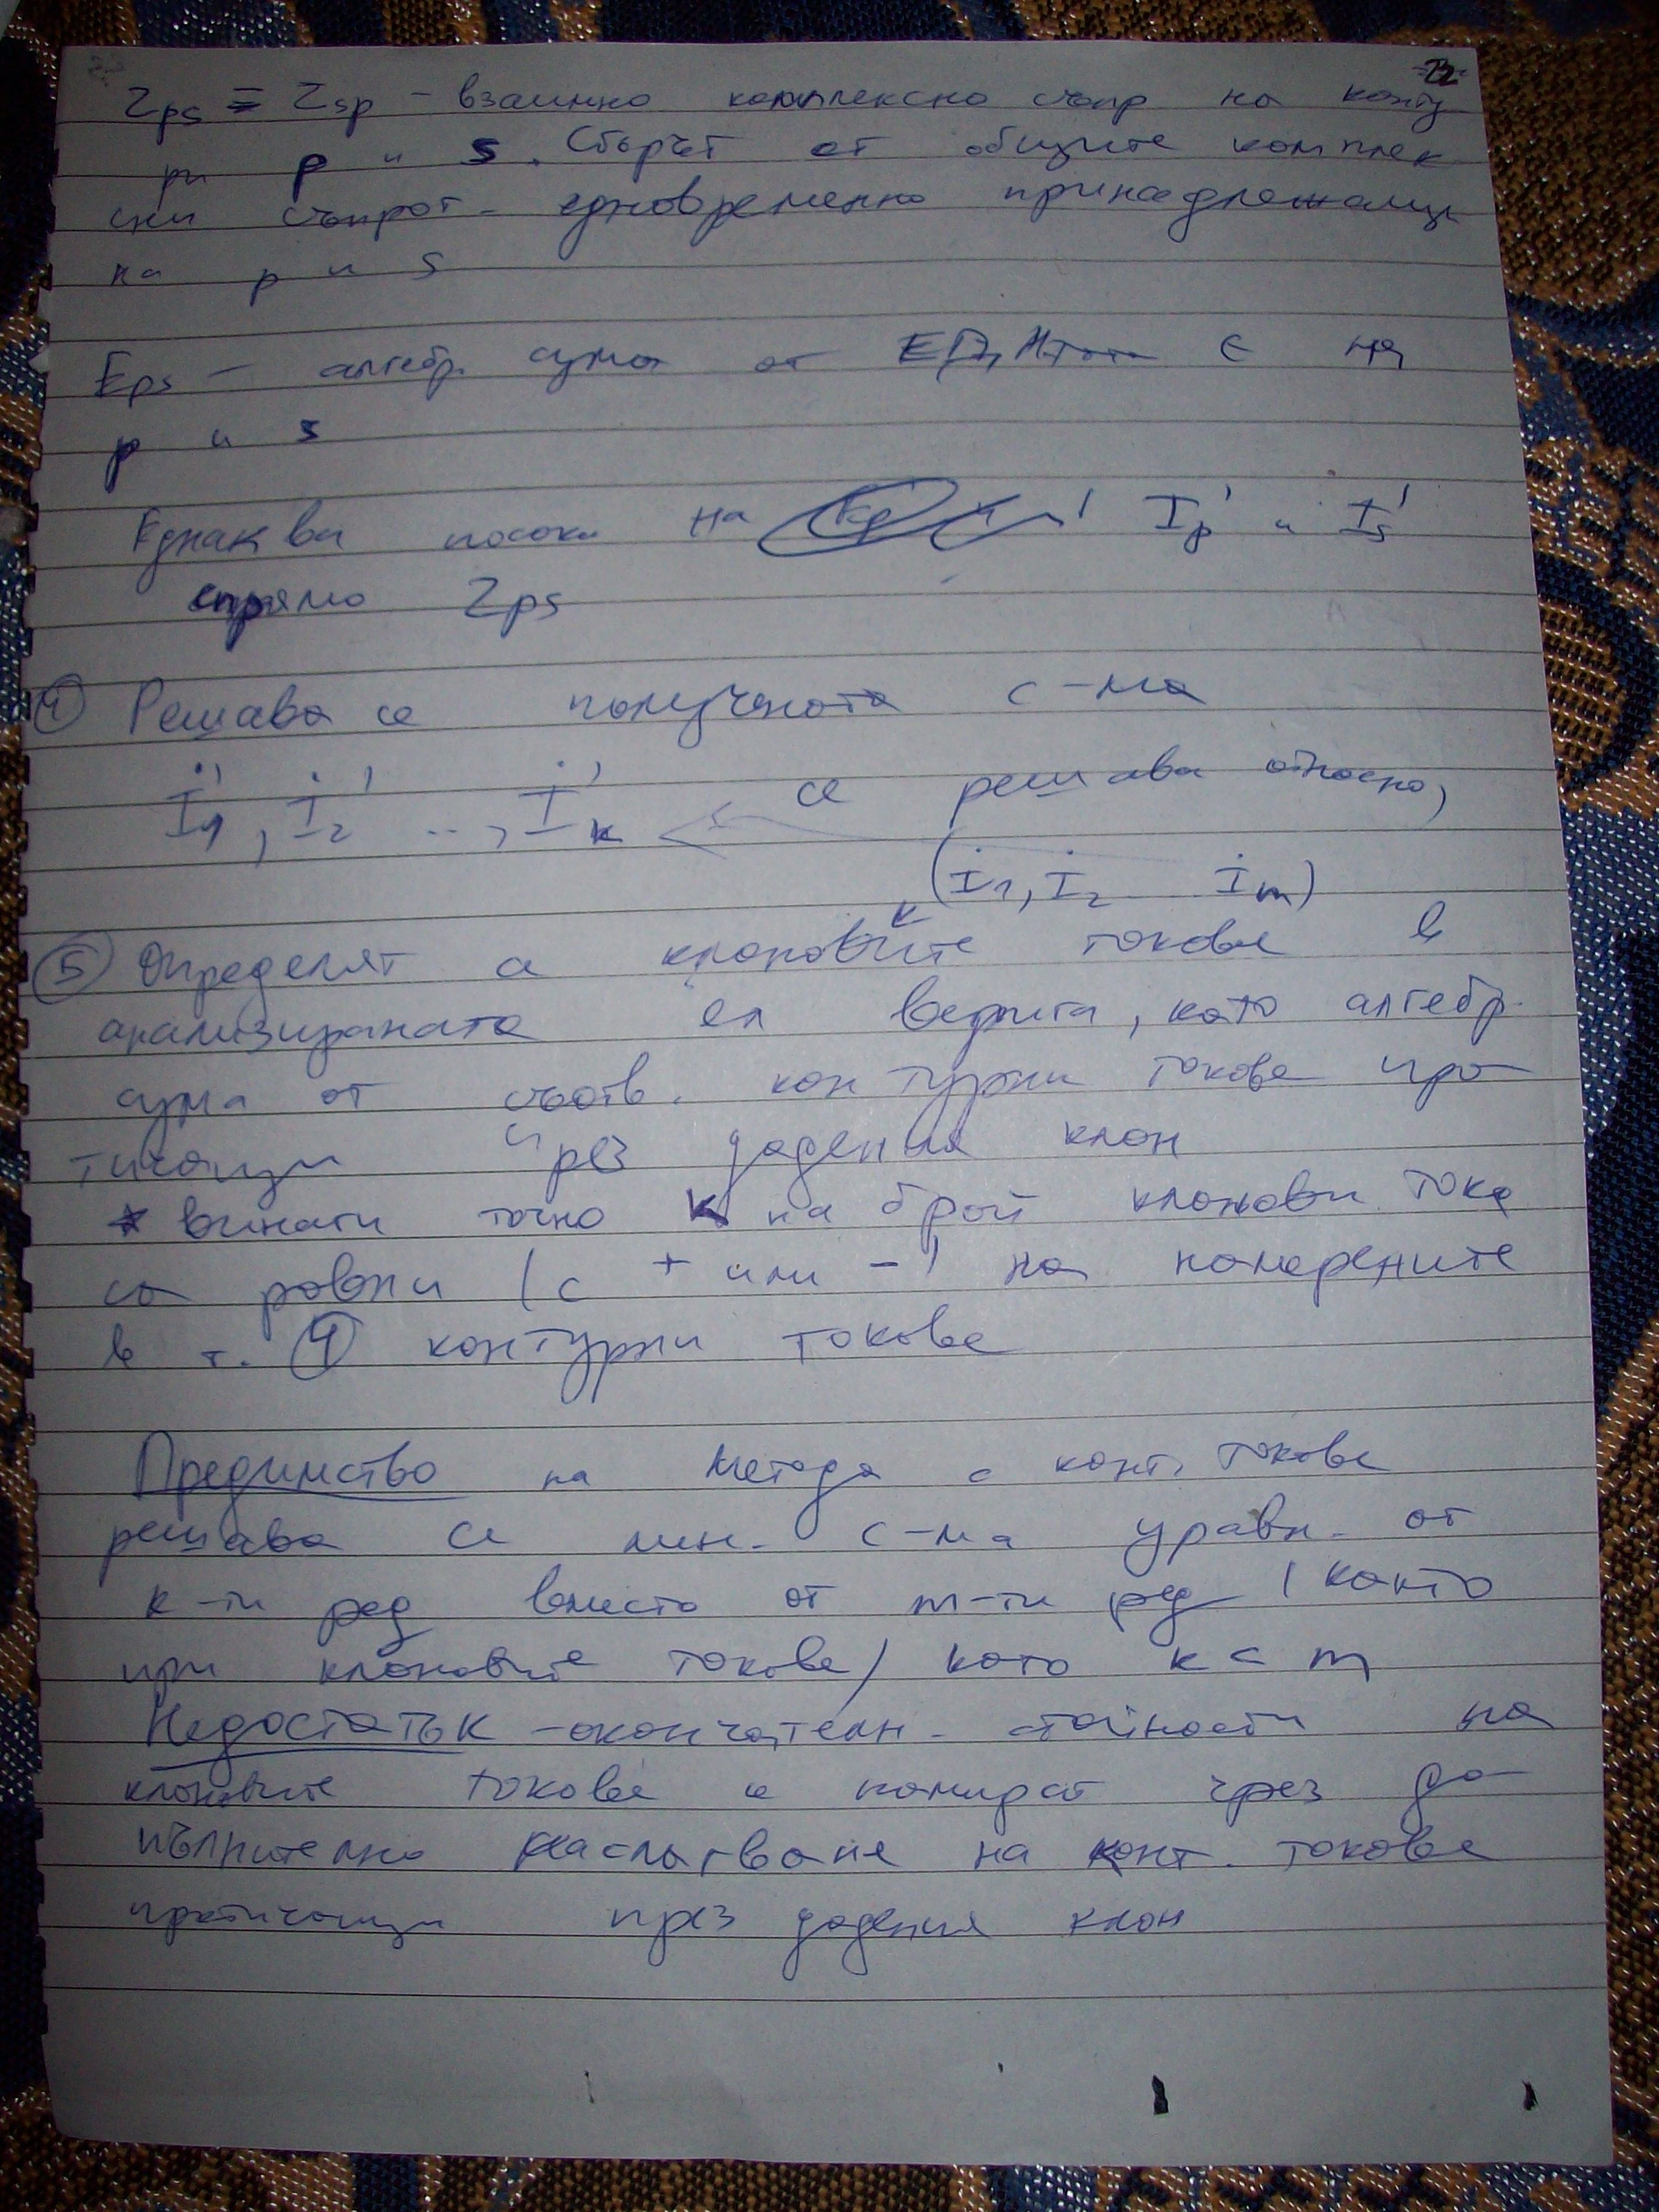 Zps = Zsp - взаимно комплексно съпр на конту
ри p и s. Сборът от общите комплек
сни съпрот- едновременно принадлежащи
на p и s
Eps - алгебр. сума от ЕДН, ∈ на
p и s
Еднакви посоки на I'p и I's
спрямо Zps
④ Решава се получената с-ма
İ'1, İ'2 .., İ'k се решава относно,
(İ1, İ2 İm)
⑤ Определят се клоновите токове в
анализираната ел верига, като алгебр.
сума от съотв. контурни токове про
тичащи през дадения клон
* винаги точно k на брой клонови ток
са равни (с + или -) на намерените
в т. ④ контурни токове
Предимство на метода с конт. токове
решава се лин. с-ма уравн. от
к-ти ред вместо от m-ти ред (както
при клоновите токове) като k < m
Недостатък - окончателн. стойности на
клоновите токове се намират чрез до
пълнително наслагване на конт. токове
протичащи през дадения клон